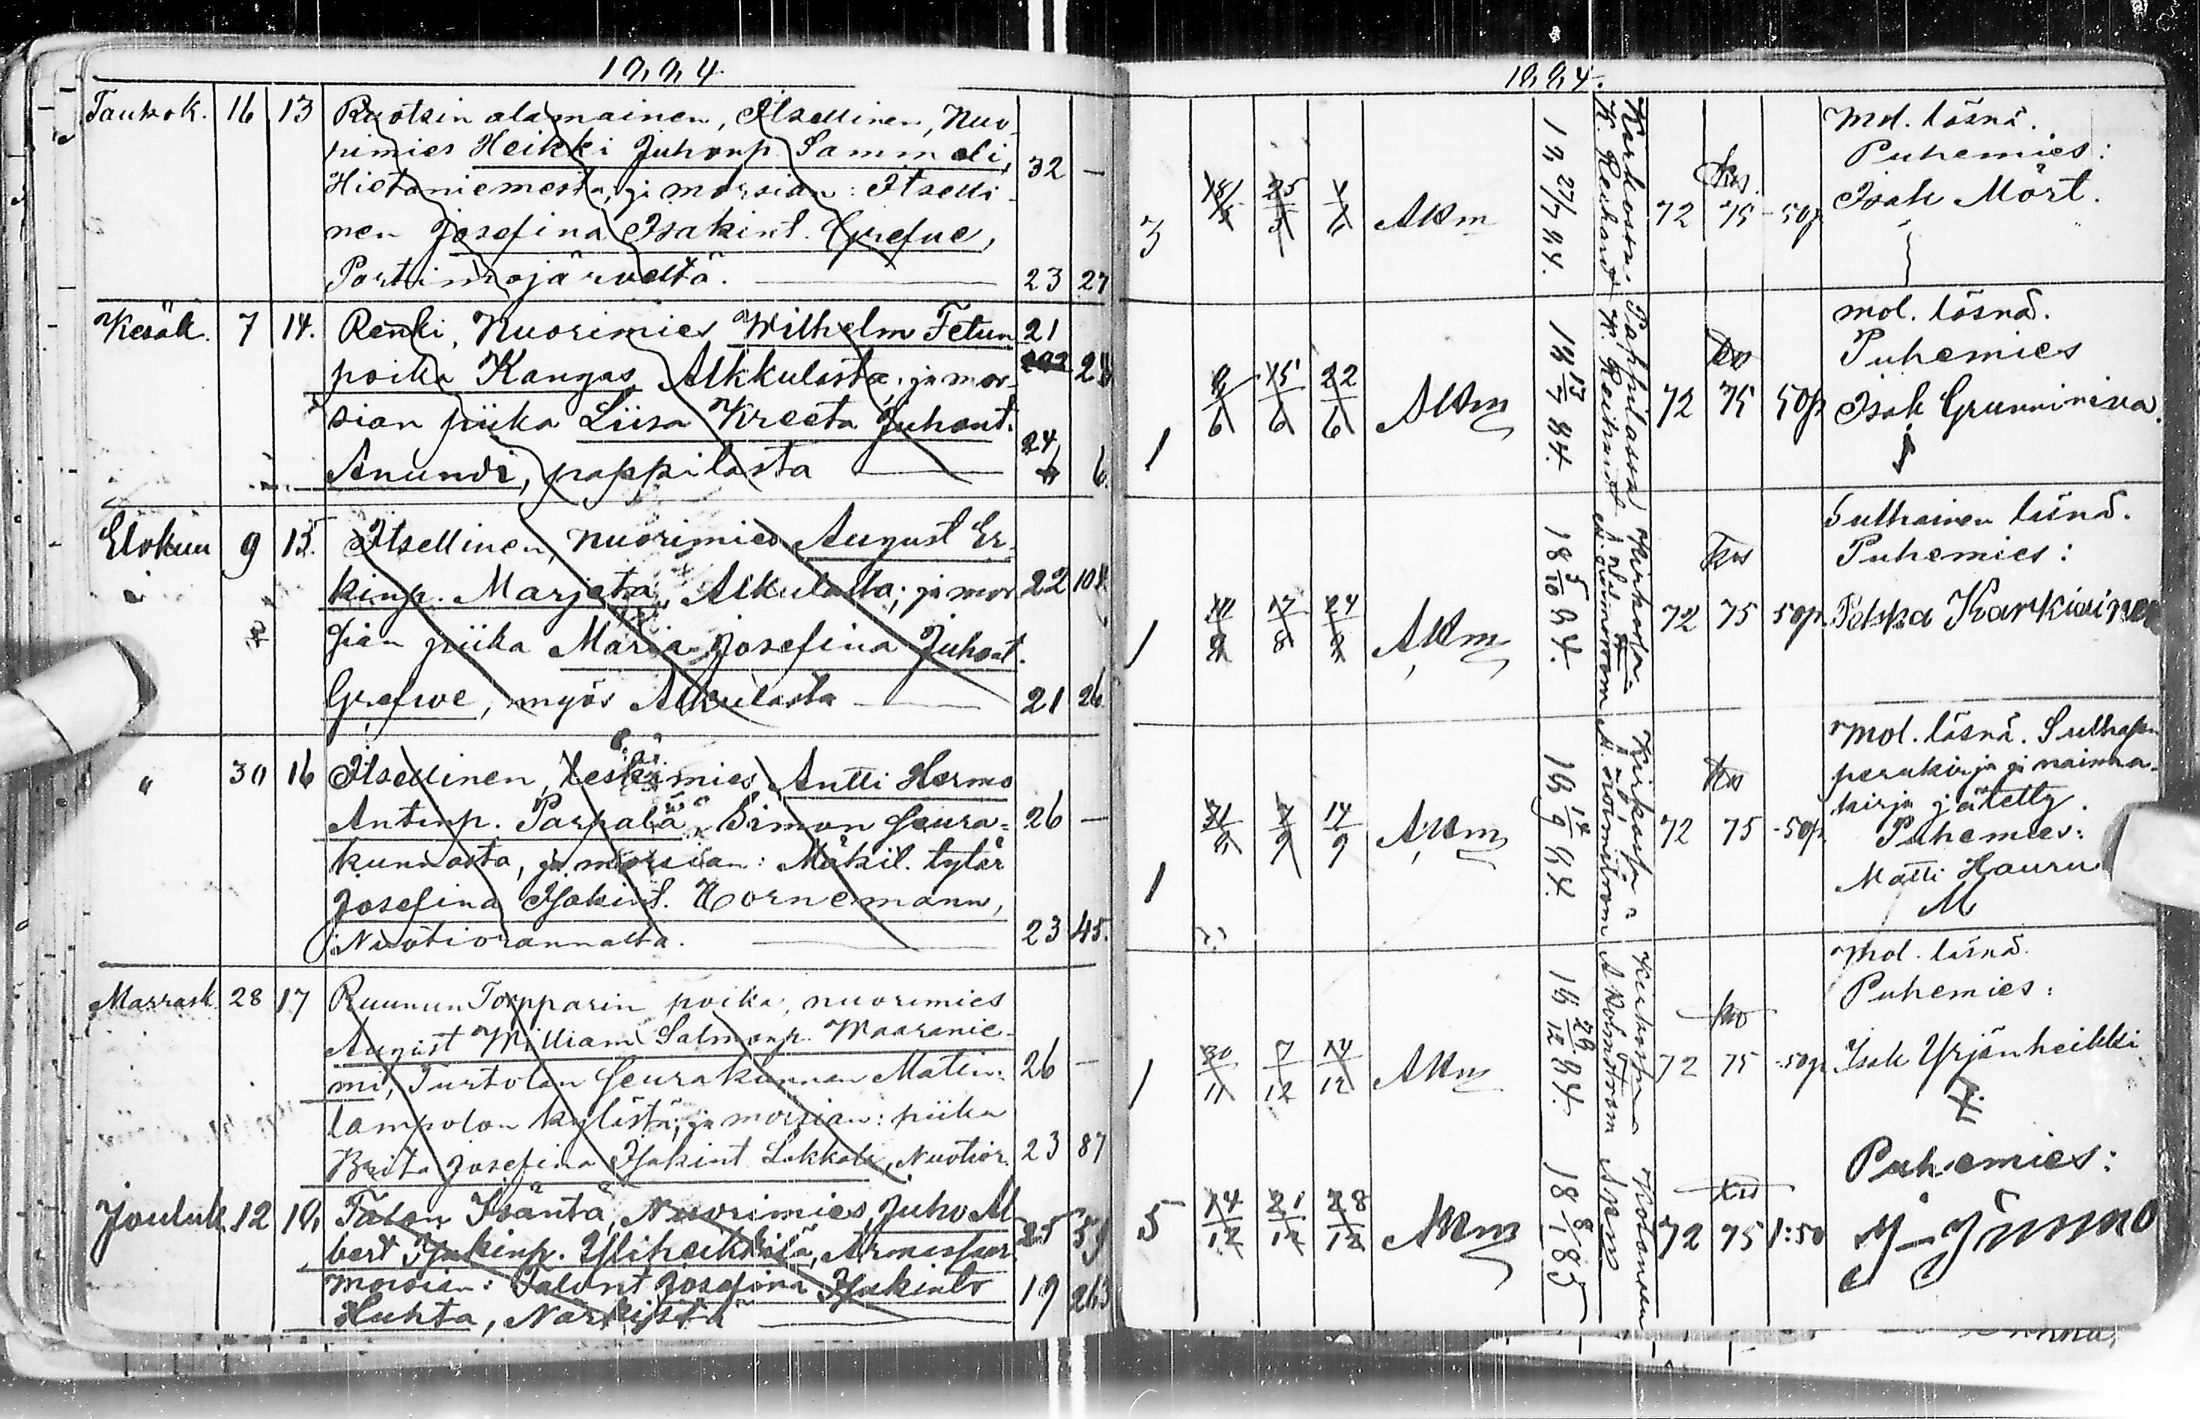 1884
Toukok. 16 13 Ruotsin alamainen, Itsellinen, Nuo-
rimies Heikki Juhonp. Sammeli, 32 —
Hietaniemestä, ja morsian: Itselli-
nen Josefina Isakint. Grefve,
Portimojärveltä. 23 27
Kesäk. 7 14. Renki, Nuorimies Wilhelm Fetun 21
poika Kangas, Alkkulasta, ja mor-
sian piika Liisa Kreeta Juhont. 24
Anundi, pappilasta 6.
Elokuu 9 15. Itsellinen, nuorimies August Er-
kinp. Marjeta, Alkulasta; ja mor 22 108
sian piika Maria Josefina Juhont.
Grefwe, myös Alkulasta 21 26
" 30 16 Itsellinen, leskimies Antti Hermo
Antinp. Parpala Simon seura= 26 —
kunnasta, ja morsian: Mäkit. tytär
Josefina Isakint. Hornemann,
Nuotiorannalta. 23 45.
Marrask. 28 17 Ruunun Torpparin poika, nuorimies
August William Salmonp. Waaranie-
mi, Turtolan seurakunnan Matin- 26 —
lampolon kylästä, ja morsian: piika
Brita Josefina Isakint. Lakkala, Nuotior. 23 87
Jouluk. 12 18 Talon Isäntä, Nuorimies, Juho Al
bert Isakinp. Yliheikkilä, Armassaar. 25 59
morsian: Talont. Josefina Isakint. 19 263
Huhta, Närkistä
1884.
3 18/5 25/5 1/6 AHm 18 27/7 84. 72 75 -50p
Mol. läsnä.
Puhemies:
Isak Mört.
1 8/6 15/6 22/6 AHm 18 13/7 84. 72 75 50p
mol. läsnä.
Puhemies
Isak Grunniniva
1 10/8 17/8 24/8 AHm 18 5/10 84. 72 75 50p.
Sulhainen läsnä.
Puhemies:
Pekka Karkiainen
1 31/8 7/9 14/9 AHm 18 14/9 84. 72 75 -50p.
Mol. läsnä. Sulhasen
perukirja ja naima-
kirja jätetty.
Puhemies:
Matti Hauru
M
1 30/11 7/12 14/12 AHm 18 28/12 84. 72 75 -50p
Mol. läsnä.
Puhemies:
Isak Yrjänheikki
5 14/12 21/12 28/12 AHm 18 8/1 85 72 75 1:50
Puhemies: